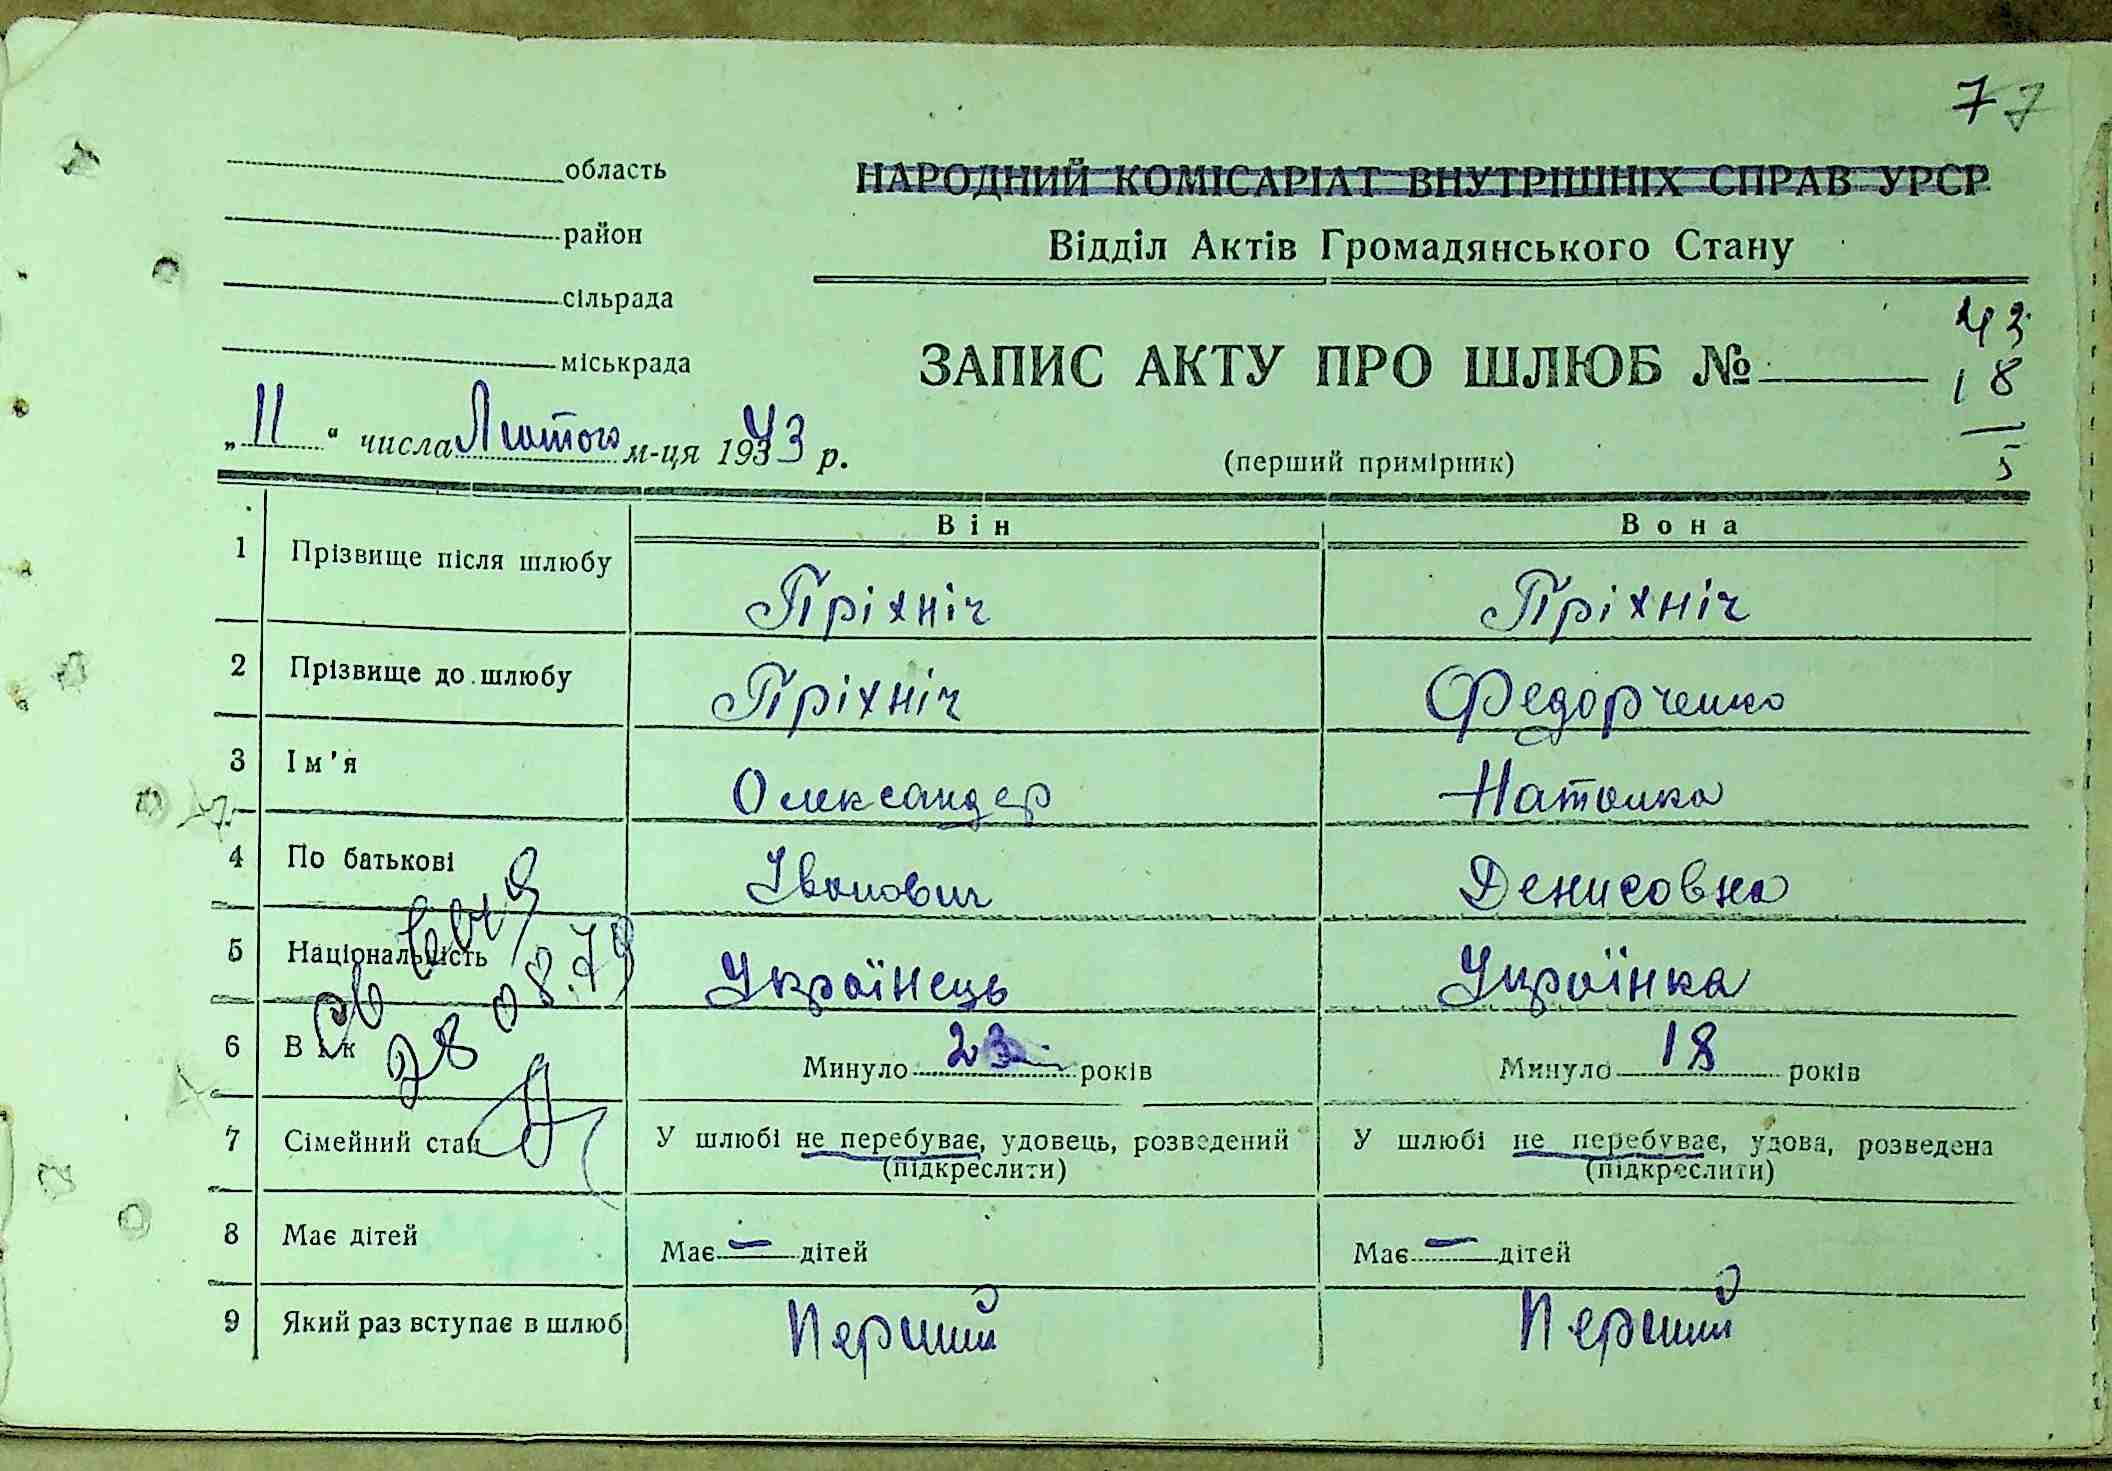 77
область
НАРОДНИЙ КОМІСАРІАТ ВНУТРІШНІХ СПРАВ УРСР
район
Відділ Актів Громадянського Стану
сільрада
43
18
5
міськрада
ЗАПИС АКТУ ПРО ШЛЮБ №
„11“ числа Лютого м-ця 1943 р.
(перший примірник)
Він Вона
1 Прізвище після шлюбу Пріхніч Пріхніч
2 Прізвище до шлюбу Пріхніч Федорченко
3 Ім'я Олександер Наталка
4 По батькові Іванович Денисовна
5 Національність Українець Українка
6 Вік Минуло 23 років Минуло 18 років
28 08.79
7 Сімейний стан У шлюбі не перебуває, удовець, розведений У шлюбі не перебуває, удова, розведена
(підкреслити) (підкреслити)
8 Має дітей Має — дітей Має — дітей
9 Який раз вступає в шлюб Перший Перший